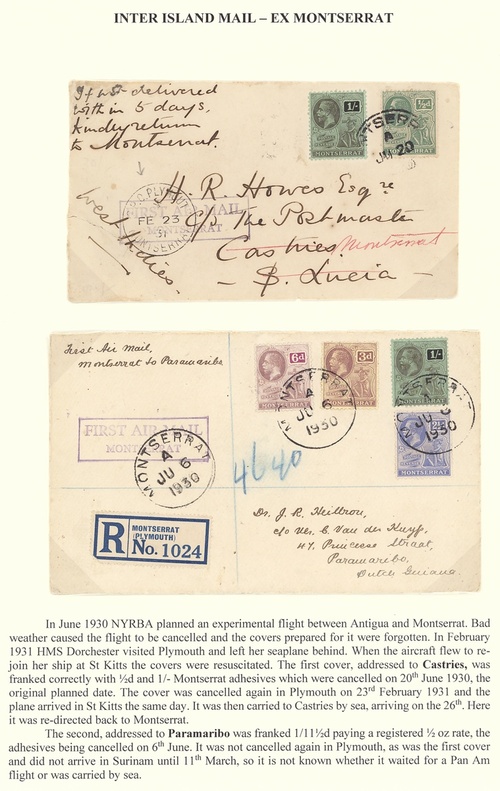 INTER ISLAND MAIL – EX MONTSERRAT
If not delivered
within 5 days,
kindly return
to Montserrat.
1/-
½d
MONTSERRAT
MONTSERRAT
MONTSERRAT
A
JU 20
G.P.O. PLYMOUTH
FE 23
31
MONTSERRAT
FIRST AIR MAIL
MONTSERRAT
H. R. Howes Esqre
C/o The Postmaster
Castries Montserrat
S. Lucia
West Indies.
First Air Mail,
Montserrat to Paramaribo
6d
3d
1/-
MONTSERRAT
A
JU 6
1930
MONTSERRAT
A
JU 6
1930
2½d
FIRST AIR MAIL
MONTSERRAT
MONTSERRAT
A
JU 6
1930
4640
R
MONTSERRAT
(PLYMOUTH)
No. 1024
Dr. J. R. Heilbron,
c/o Mr. E. Van der Kuyp,
47, Princesse Straat,
Paramaribo,
Dutch Guiana.
In June 1930 NYRBA planned an experimental flight between Antigua and Montserrat. Bad
weather caused the flight to be cancelled and the covers prepared for it were forgotten. In February
1931 HMS Dorchester visited Plymouth and left her seaplane behind. When the aircraft flew to re-
join her ship at St Kitts the covers were resuscitated. The first cover, addressed to Castries, was
franked correctly with ½d and 1/- Montserrat adhesives which were cancelled on 20th June 1930, the
original planned date. The cover was cancelled again in Plymouth on 23rd February 1931 and the
plane arrived in St Kitts the same day. It was then carried to Castries by sea, arriving on the 26th. Here
it was re-directed back to Montserrat.
The second, addressed to Paramaribo was franked 1/11½d paying a registered ½ oz rate, the
adhesives being cancelled on 6th June. It was not cancelled again in Plymouth, as was the first cover
and did not arrive in Surinam until 11th March, so it is not known whether it waited for a Pan Am
flight or was carried by sea.